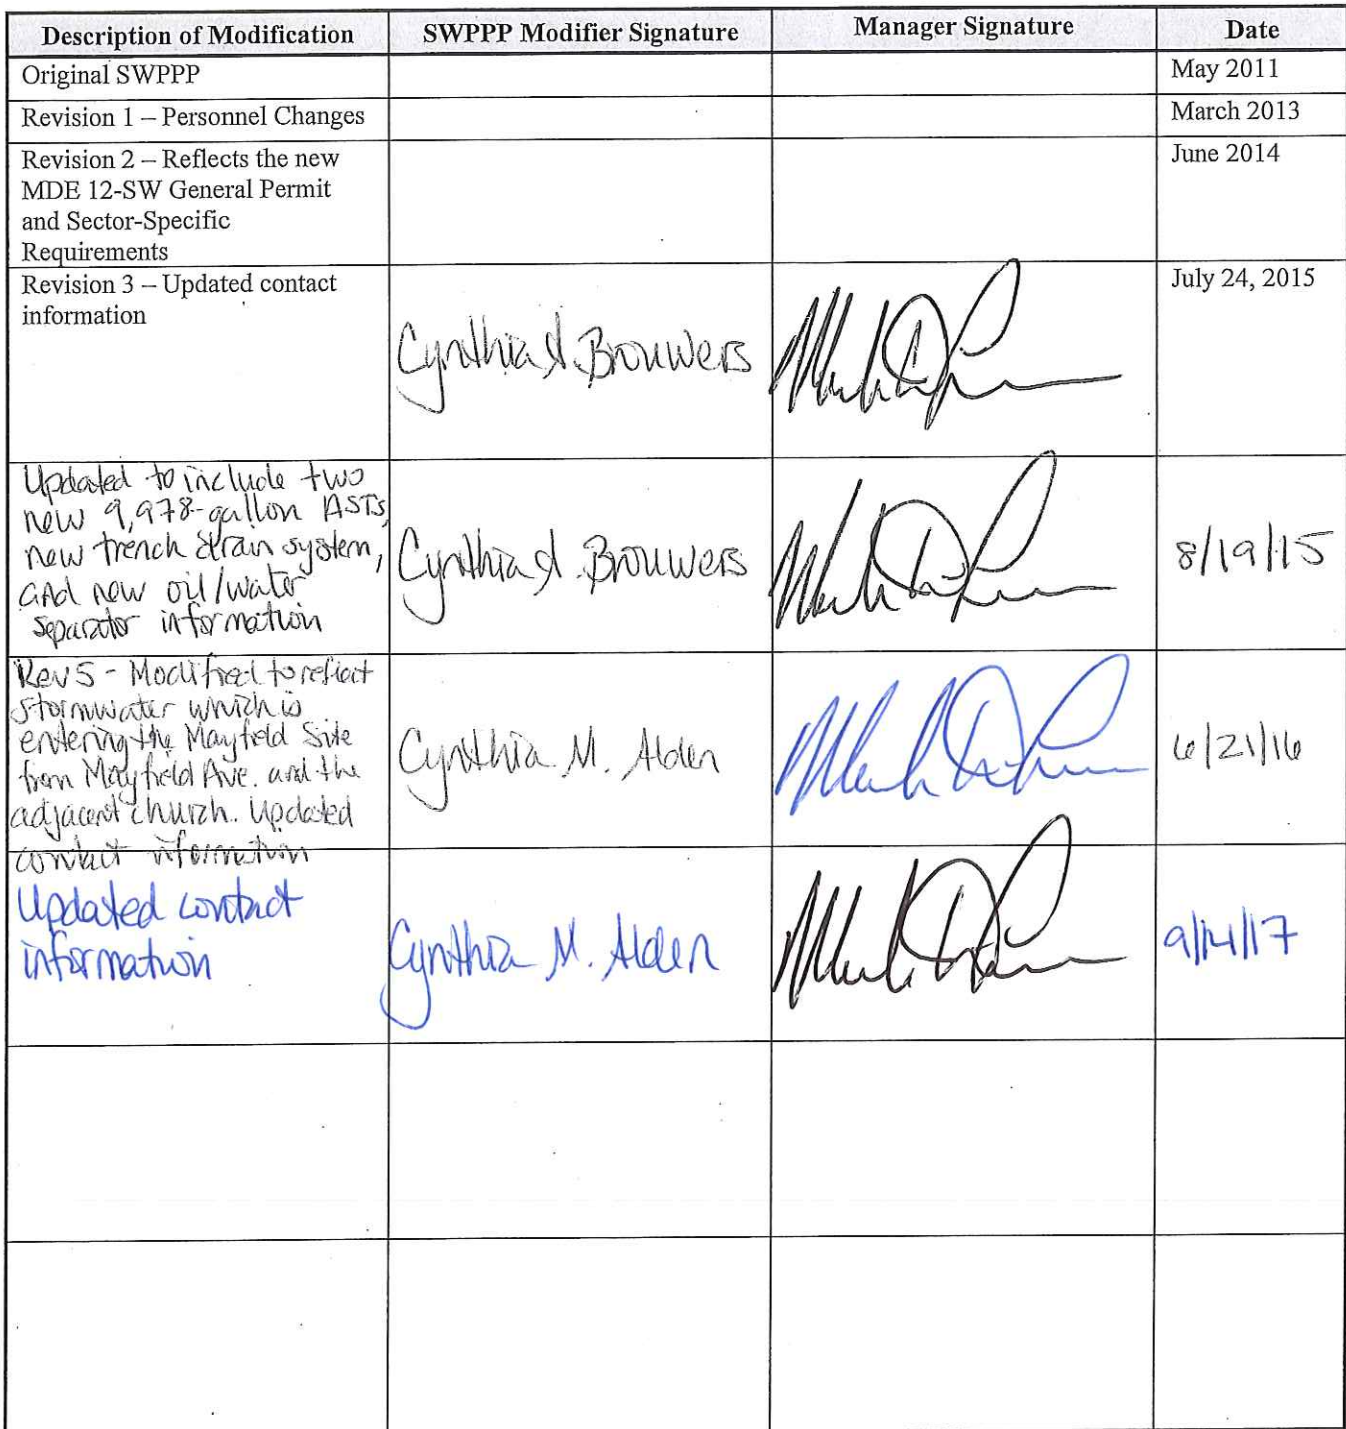 Description of Modification SWPPP Modifier Signature Manager Signature Date
Original SWPPP May 2011
Revision 1 – Personnel Changes March 2013
Revision 2 – Reflects the new June 2014
MDE 12-SW General Permit
and Sector-Specific
Requirements
Revision 3 – Updated contact July 24, 2015
information
Cynthia Brouwers
Updated to include two
new 9,978-gallon ASTs,
new trench drain system,
and new oil/water
separator information
Cynthia Brouwers
8/19/15
Rev 5 - Modified to reflect
stormwater which is
entering the Mayfield Site
from Mayfield Ave. and the
adjacent church. Updated
contact information
Cynthia M. Alden
6/21/16
Updated contact
information
Cynthia M. Alden
9/14/17